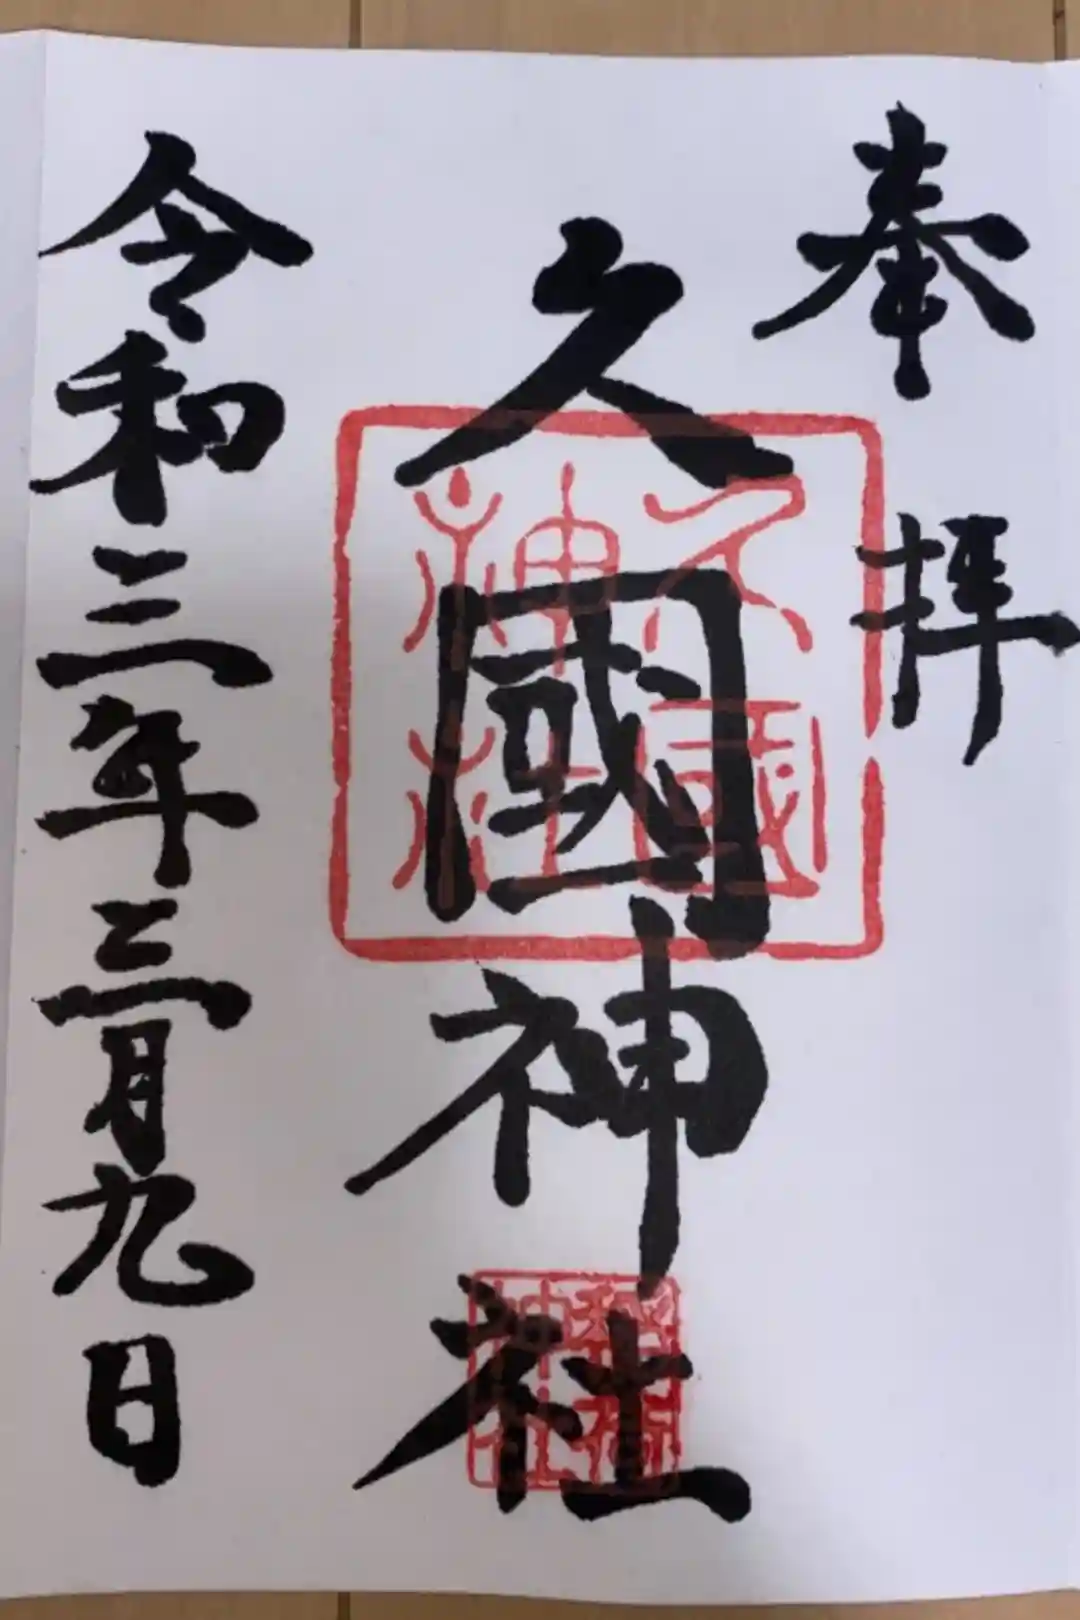 奉拝
久國神社
久國神社
令和三年三月九日